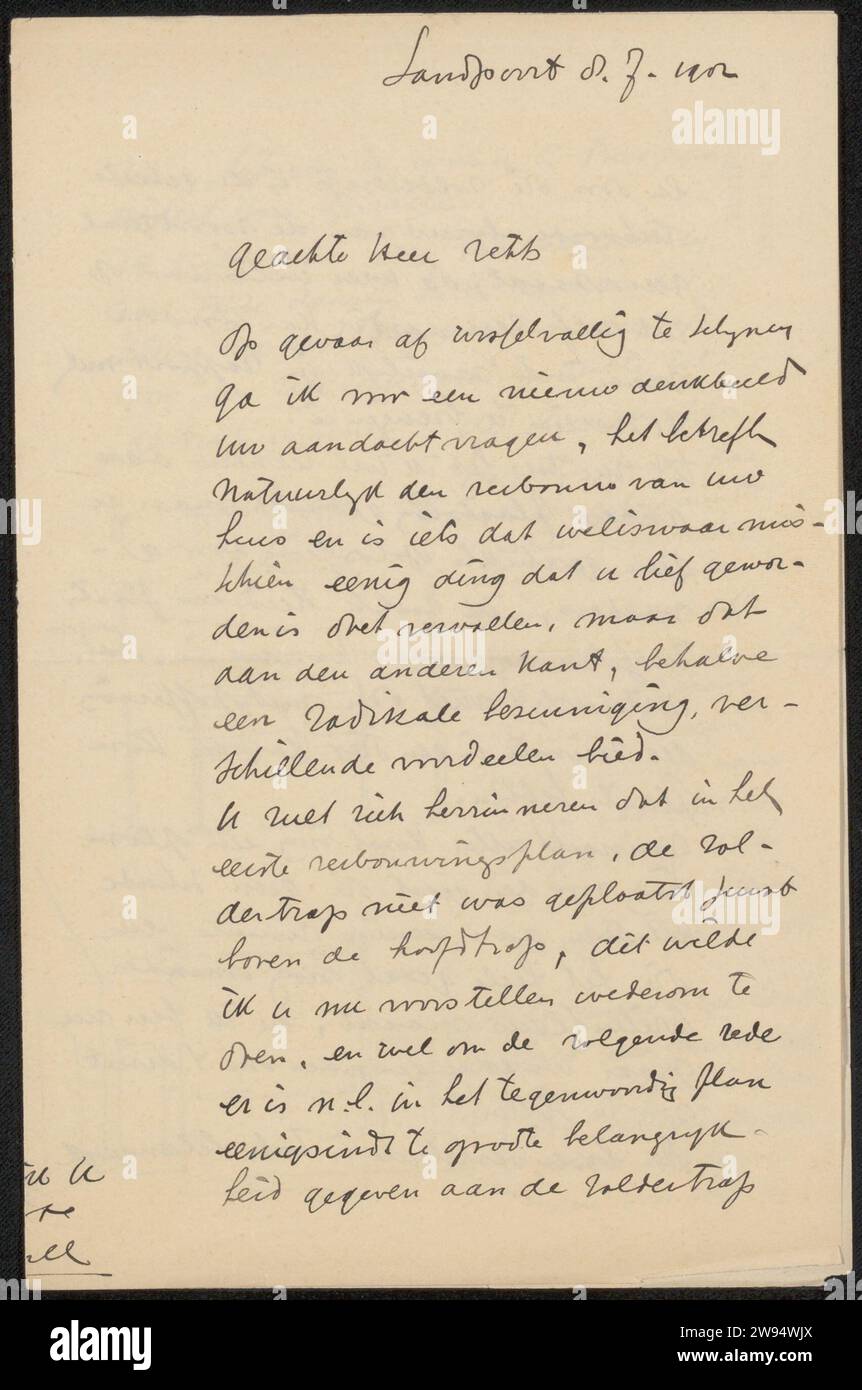 Landpoort 8.7.1902
geachte Heer Veth
Op gevaar af wisselvallig te schynen
ga ik voor een nieuw denkbeeld
uw aandacht vragen, het betreft
natuurlyk den verbouw van uw
huis en is iets dat weliswaar mis-
schien eenig ding dat u lief gewor-
den is doet vervallen, maar dat
aan den anderen kant, behalve
een radikale bezuiniging, ver-
schillende voordeelen bied.
U zult zich herrinneren dat in het
eerste verbouwingsplan, de zol-
dertrap niet was geplaatst juist
boven de hoofdtrap, dit wilde
ik u nu voorstellen wederom te
doen, en wel om de volgende rede
er is n.l. in het tegenwoordig plan
eenigsindt te groote belangryk-
heid gegeven aan de zoldertrap
U
te
alamy
a
Image ID: 2W94WJX
www.alamy.com